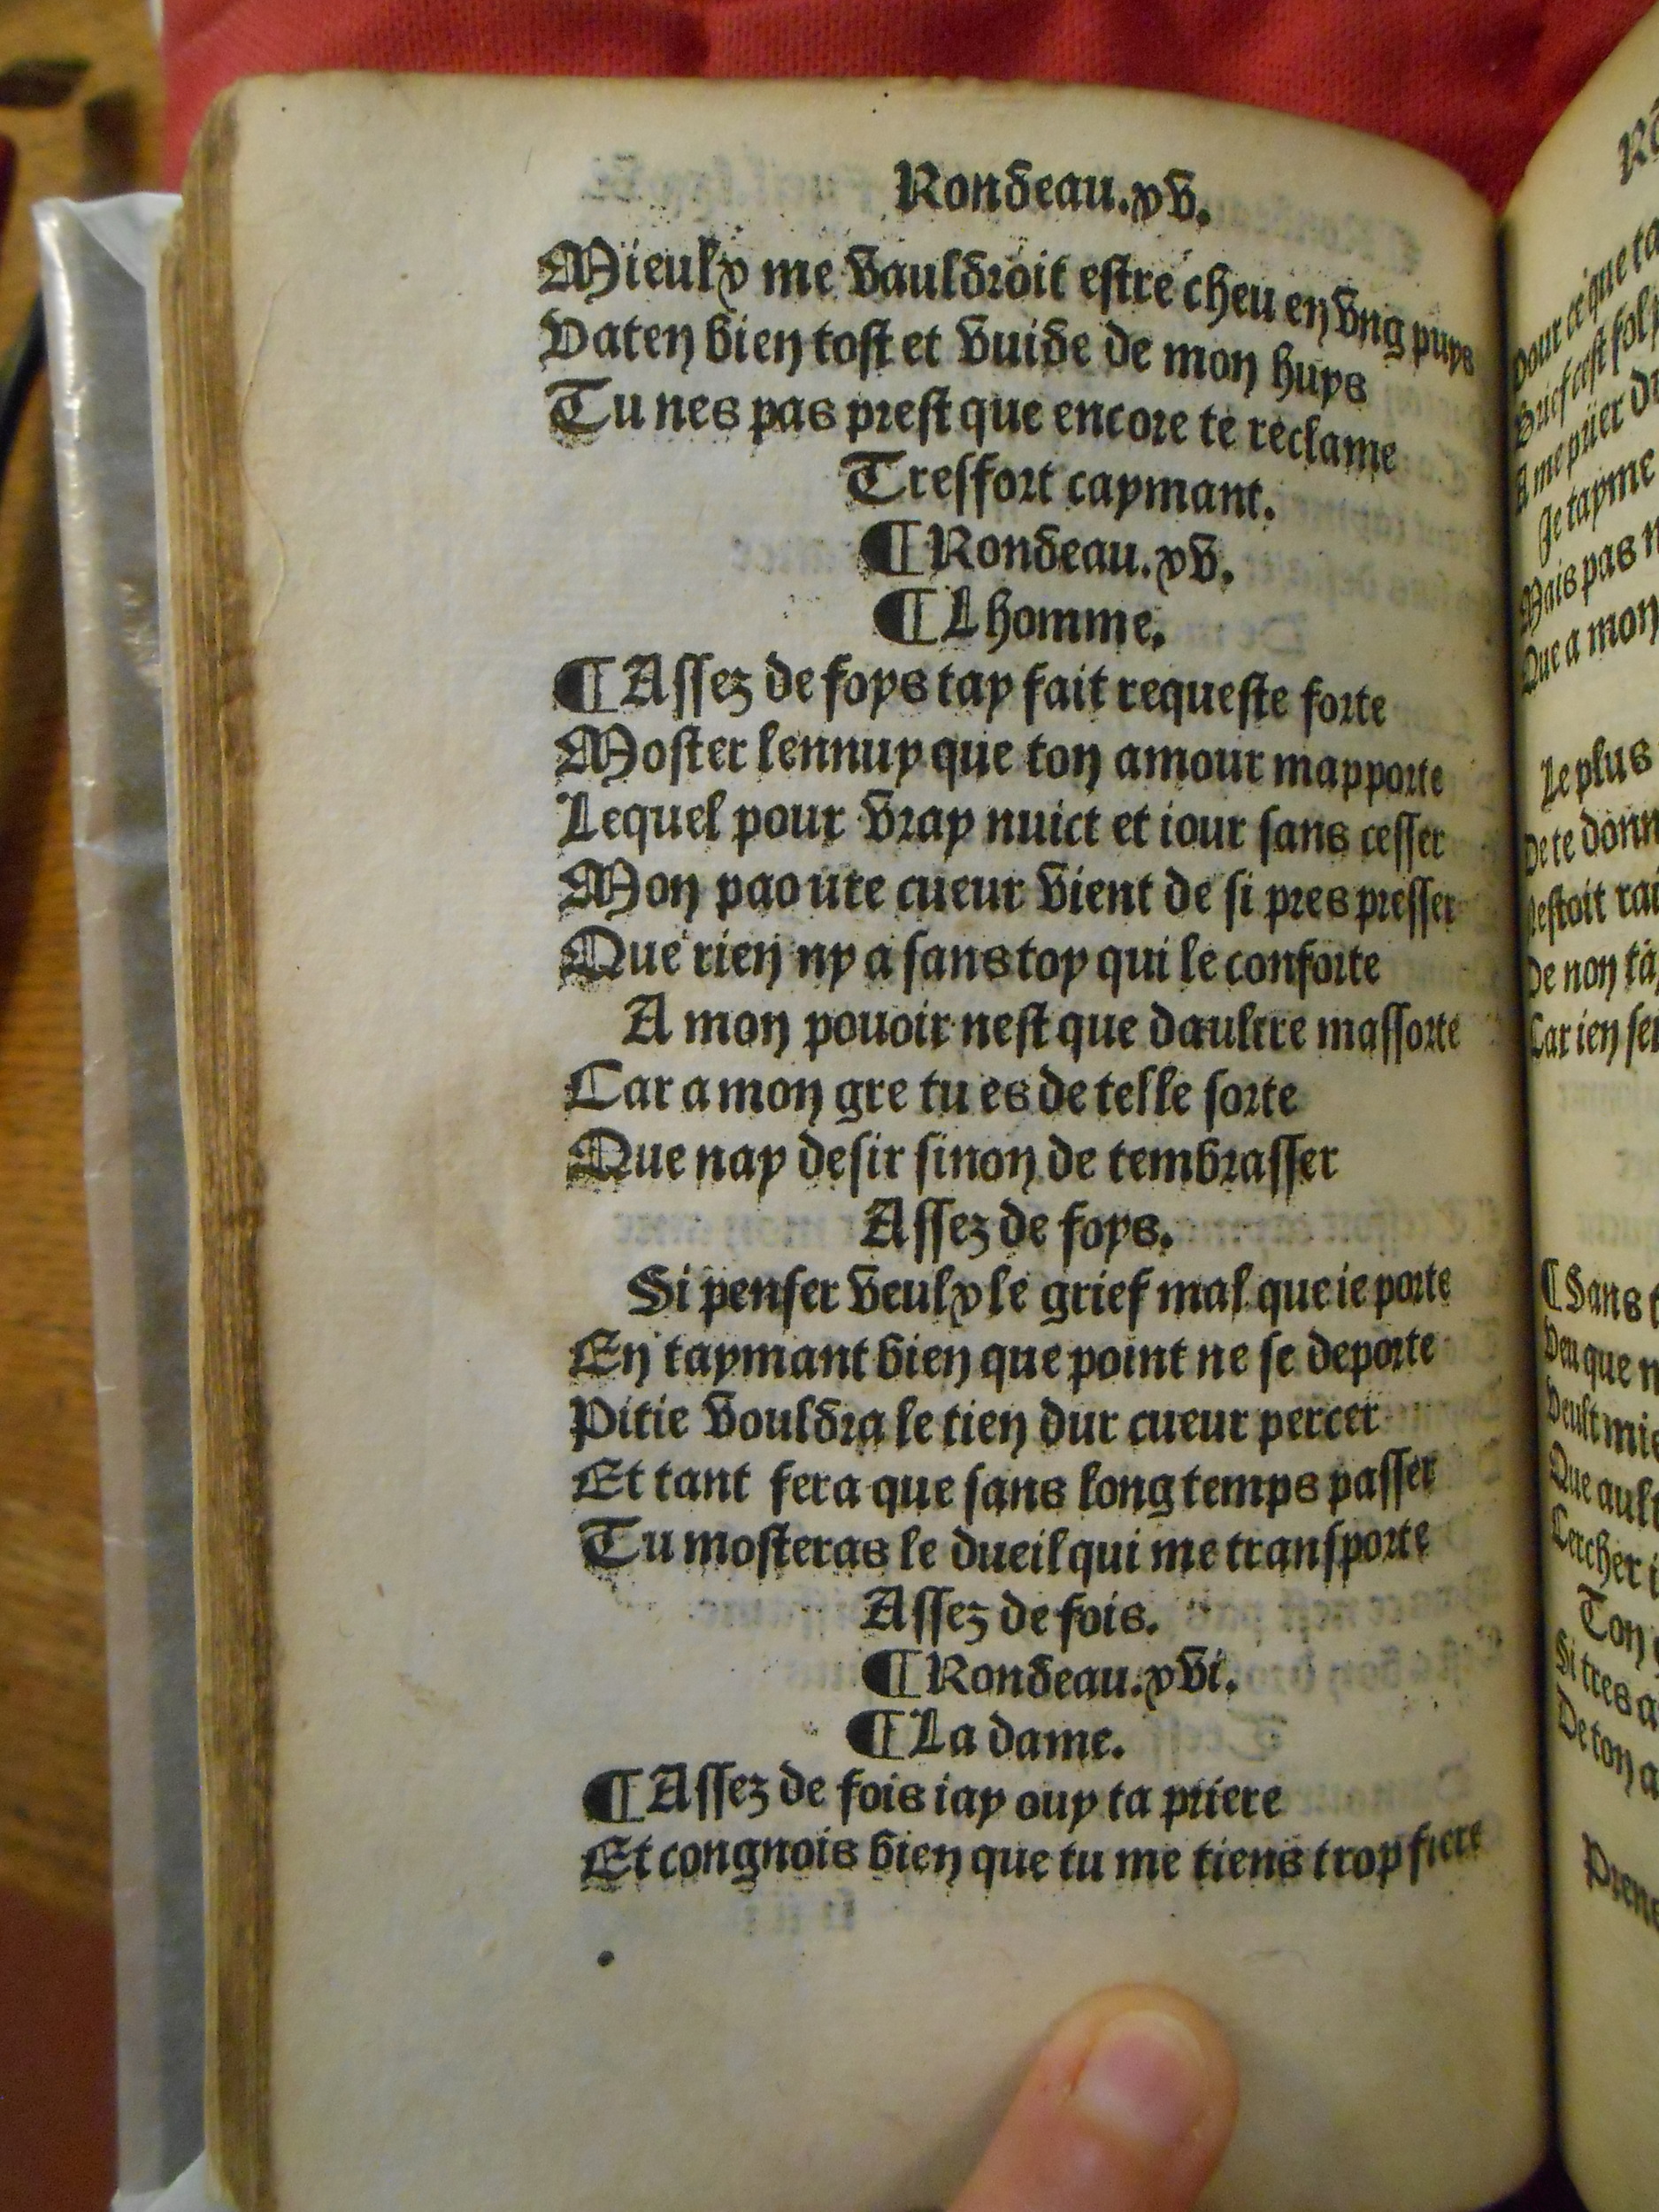 Rondeau.xv.
Mieulx me vauldroit estre cheu en ung puys
Vaten bien tost et vuide de mon huys
Tu nes pas prest que encore te reclame
Tresfort caymant.
¶Rondeau.xv.
¶Lhomme.
¶Assez de foys tay fait requeste forte
Moster lennuy que ton amour mapporte
Lequel pour vray nuict et iour sans cesser
Mon paoure cueur vient de si pres presser
Que rien ny a sans toy qui le conforte
A mon pouoir nest que daultre massorte
Car a mon gre tu es de telle sorte
Que nay desir sinon de tembrasser
Assez de foys.
Si penser veulx le grief mal que ie porte
En taymant bien que point ne se deporte
Pitie vouldra le tien dur cueur percer
Et tant fera que sans long temps passer
Tu mosteras le dueil qui me transporte
Assez de fois.
¶Rondeau.xvi.
¶La dame.
¶Assez de fois iay ouy ta priere
Et congnois bien que tu me tiens trop fiere
Pour ce que ta
Brief cest fol
A me prier du
Je tayme
Mais pas n
Que a mon
Le plus
De te donn
Nestoit rai
De non ta
Car ien se
¶Sans t
Veu que n
Veult mie
Que ault
Cercher i
Ton
Si tres a
De ton a
Prene